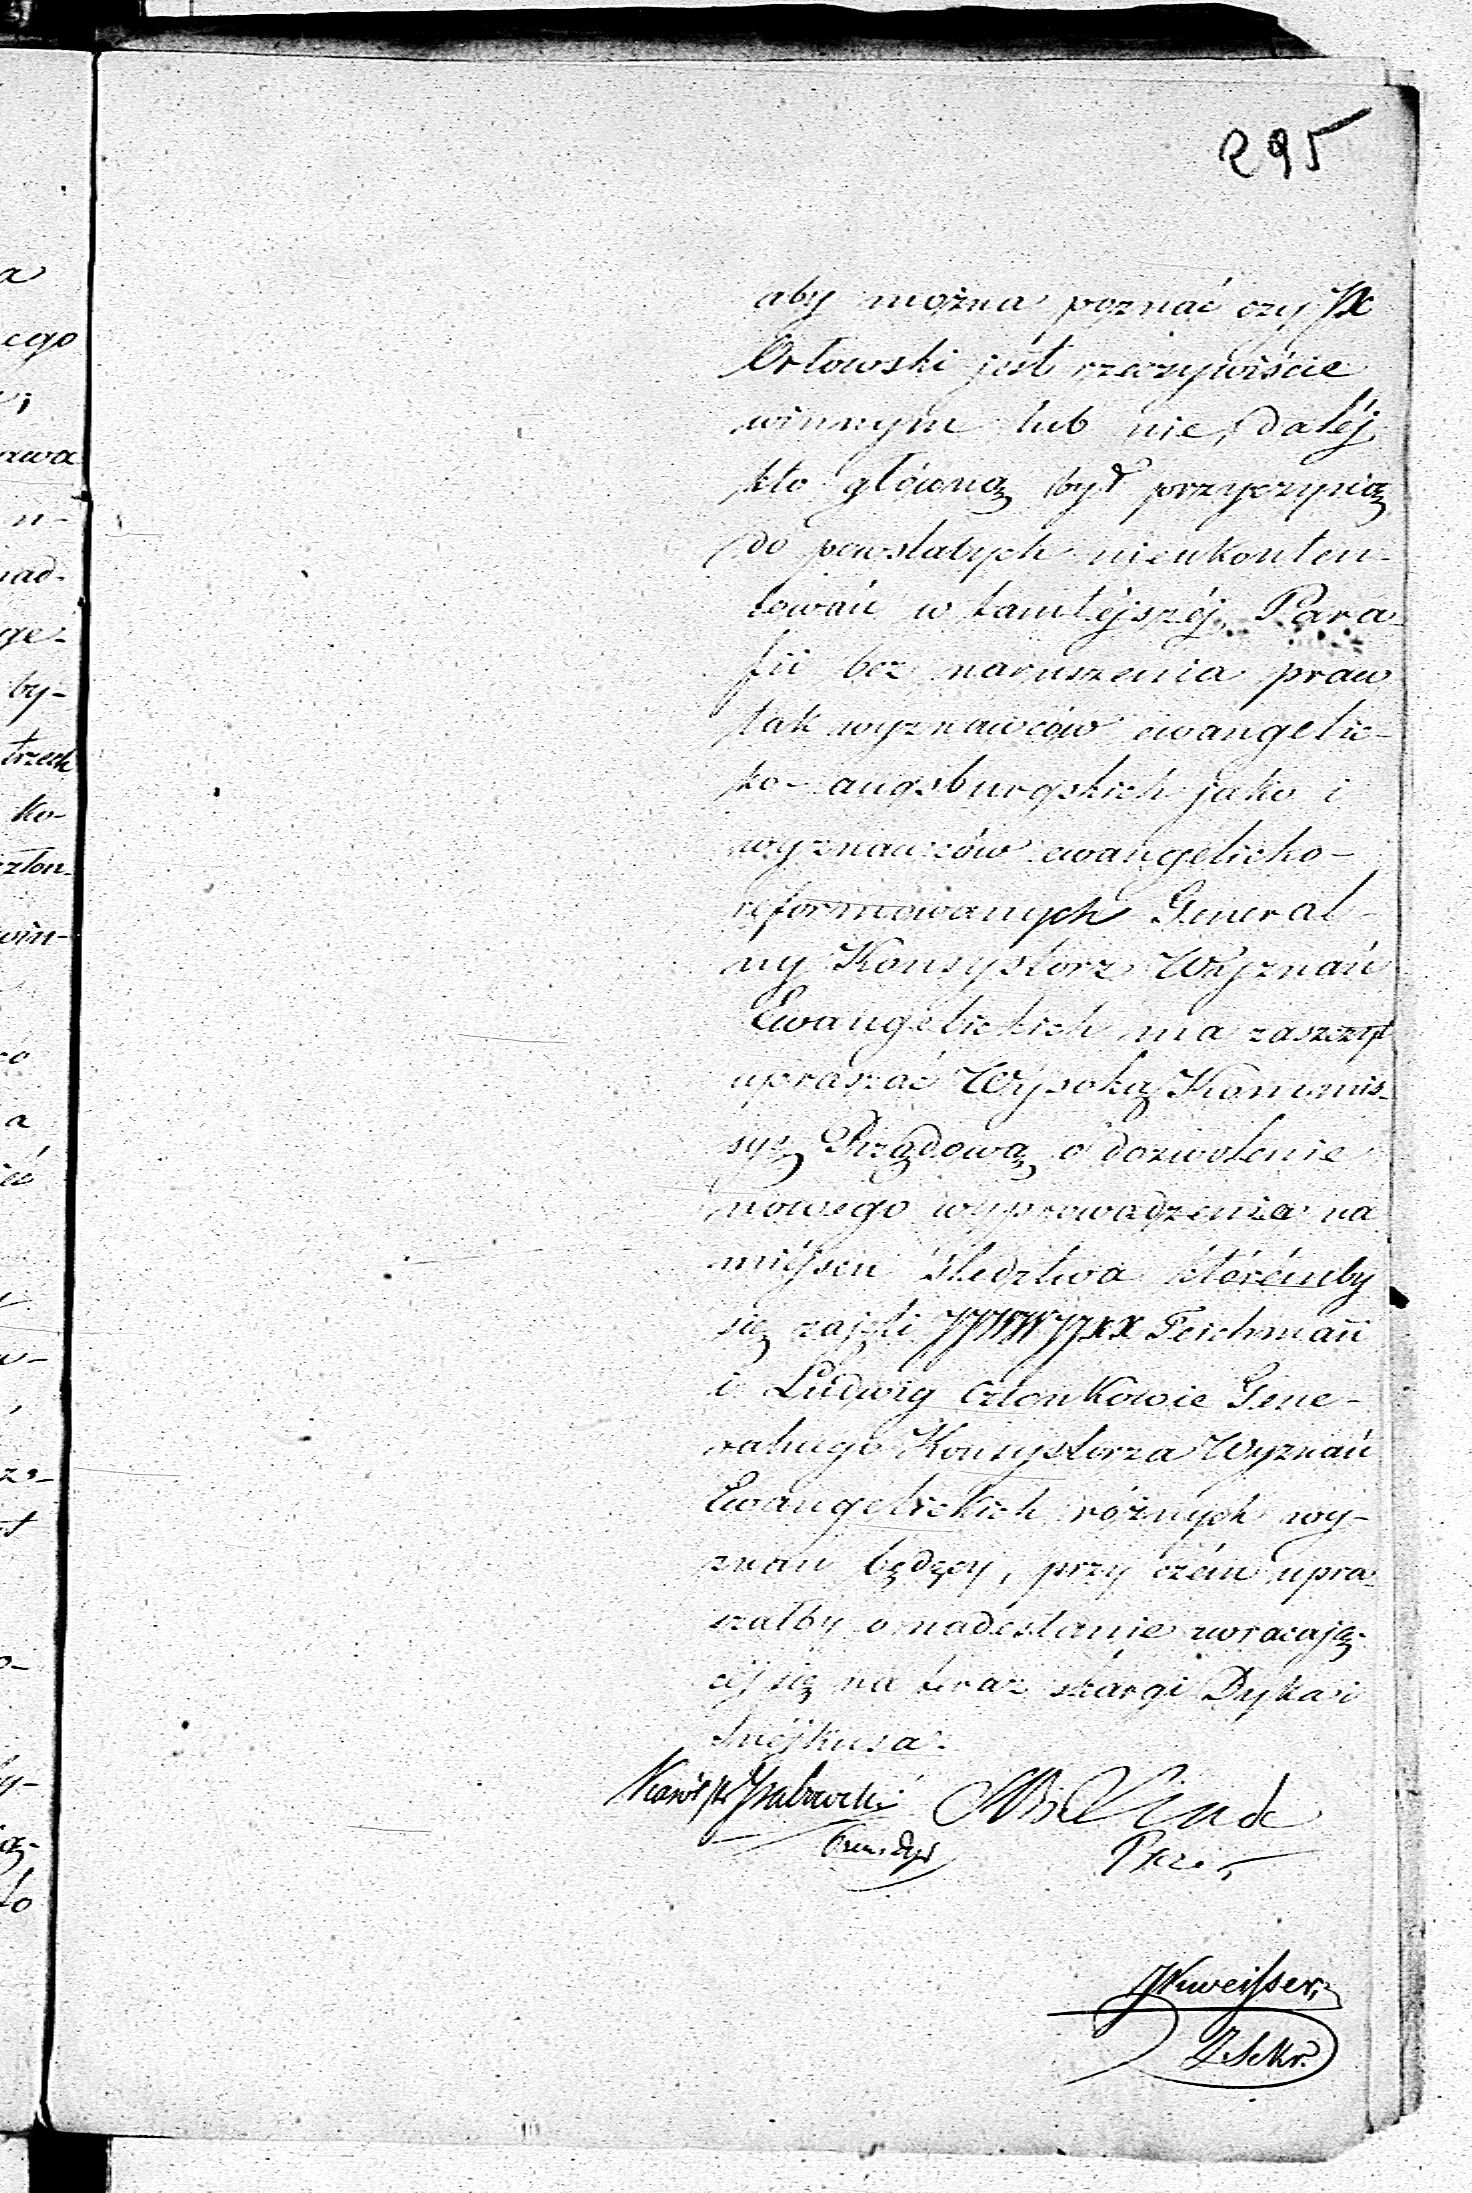 295
aby można poznać czy JX
Orłowski jest rzeczywiście
winnym lub nie, daléj
kto główną był przyczyną
do powstałych nieukonten-
towań w tamtéjszéj Para-
fii bez naruszenia praw
tak wyznawców ewangelic-
ko-augsburgskich jako i
wyznawców ewangelicko-
reformowanych General-
ny Konsystorz Wyznań
Ewangelickich ma zaszczyt
upraszać Wysoką Kommis-
syą Rządową o dozwolenie
nowego wyprowadzenia na
miéjscu śledztwa którémby
się zajęli JJWWJJXX Teichmann
i Ludwig członkowie Gene-
ralnego Konsystorza Wyznań
Ewangelickich różnych wy-
znań będący, przy czém upra-
szałby o nadesłanie zwracają-
céj się na teraz skargi Dyka i
Snéjkusa.
Linde
Prezes
a
cego
awa
n-
nad-
ge-
by-
trzech
ko-
człon-
win-
a
to